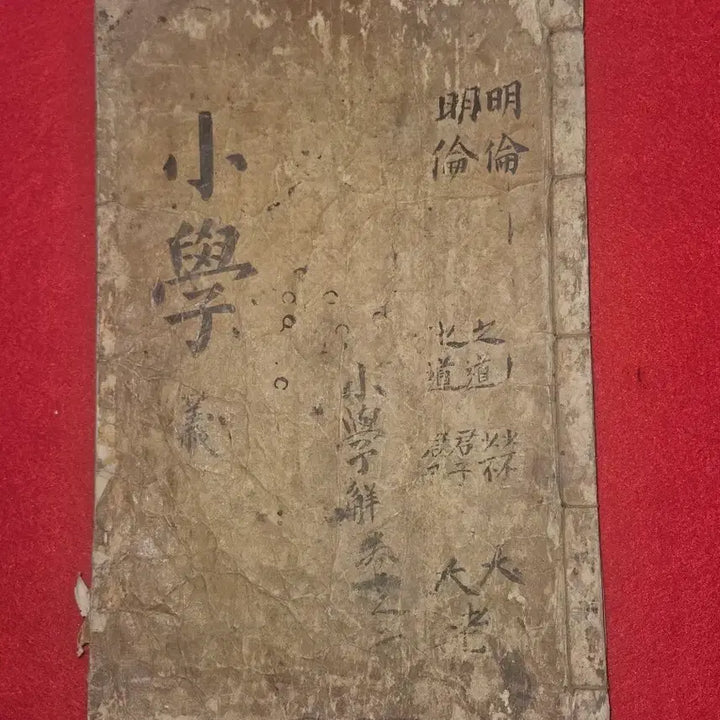 明倫
明倫
之道
之道
君子
大
大
小學解卷之二
小學
義